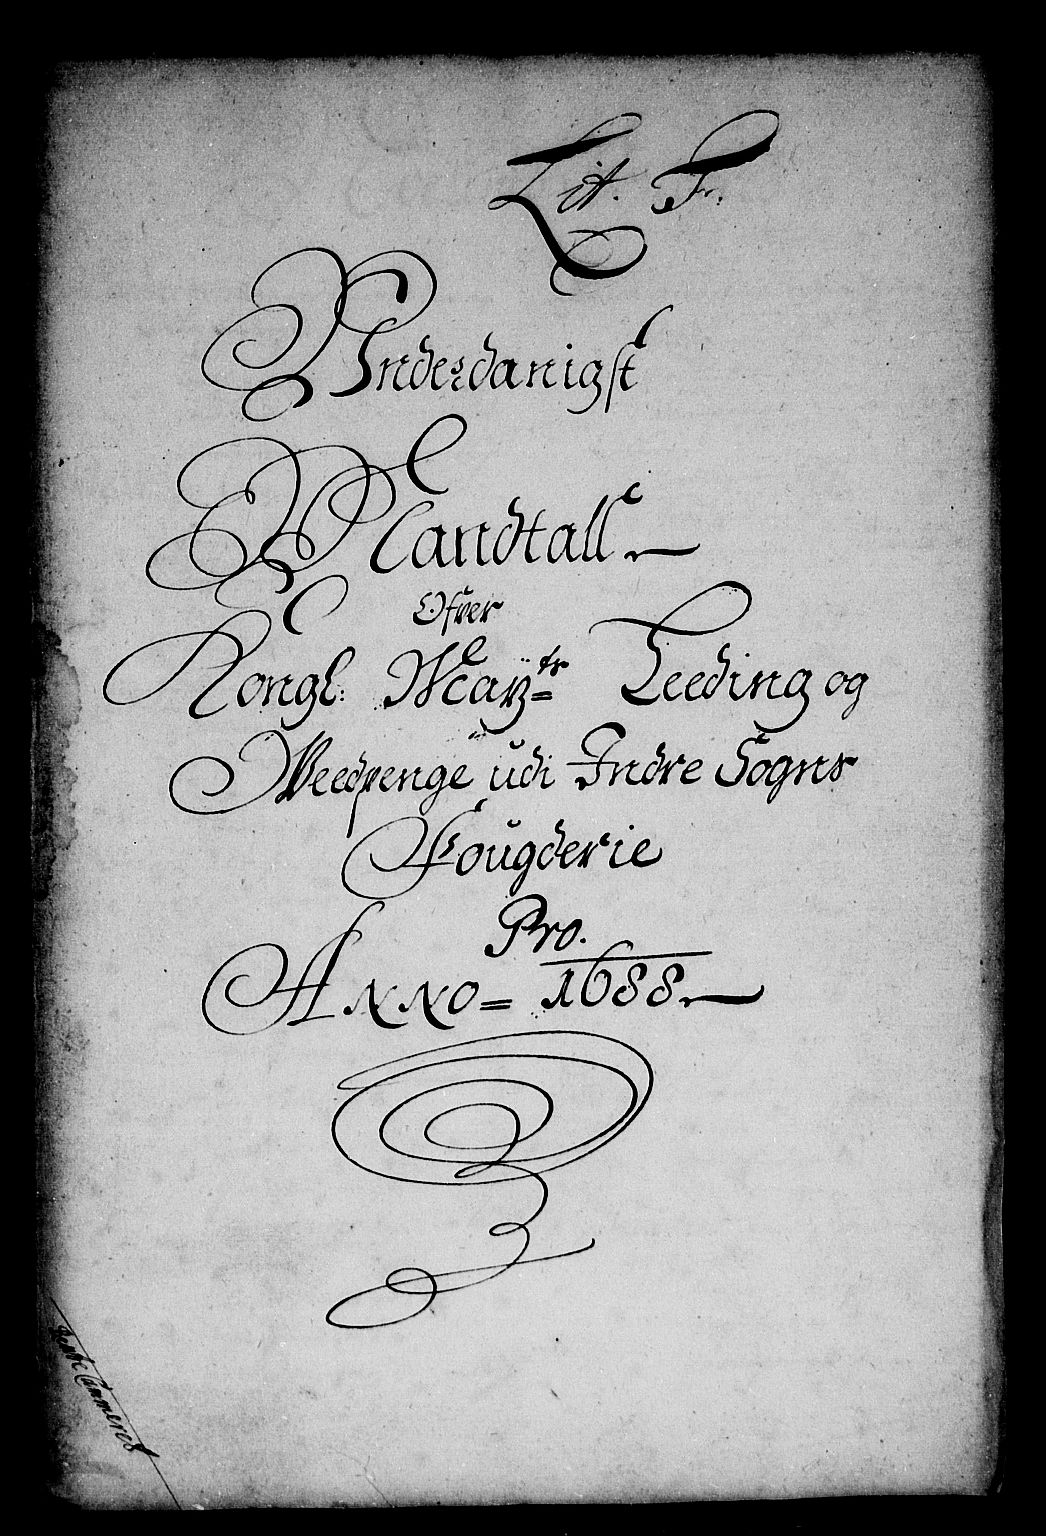 Lit. F.
Underdanigst
Mandtall
Ofver
Kongl: Maÿ=tz Leeding og
Weedpenge udi Indre Sogns
Fougderie
Pro.
Anno= 1688.
Rente Cammeret